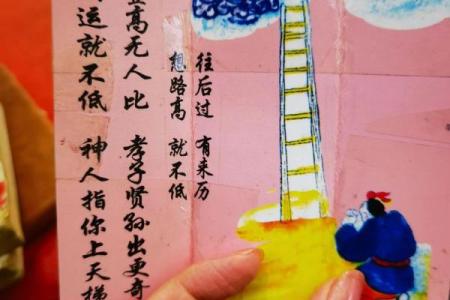 往后过 有来历
想路高 就不低
高无人比 孝子贤孙出更奇
运就不低 神人指你上天梯